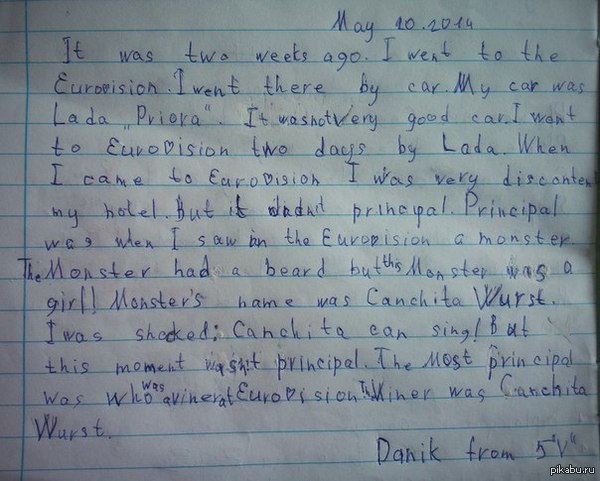 May 20.2014
It was two weeks ago. I went to the
Eurovision. I went there by car. My car was
Lada „Priora“. It wasnot very good car. I want
to Eurovision two days by Lada. When
I came to Eurovision I was very disconten
my hotel. But it didnt principal. Principal
was when I saw in the Eurovision a monster.
The Monster had a beard but this Monster was a
girl! Monster's name was Canchita Wurst.
I was shocked: Canchita can sing! But
this moment wasnt principal. The Most principal
was who was a viner at Eurovision The Winer was Canchita
Wurst.
Danik from 5"V"
pikabu.ru